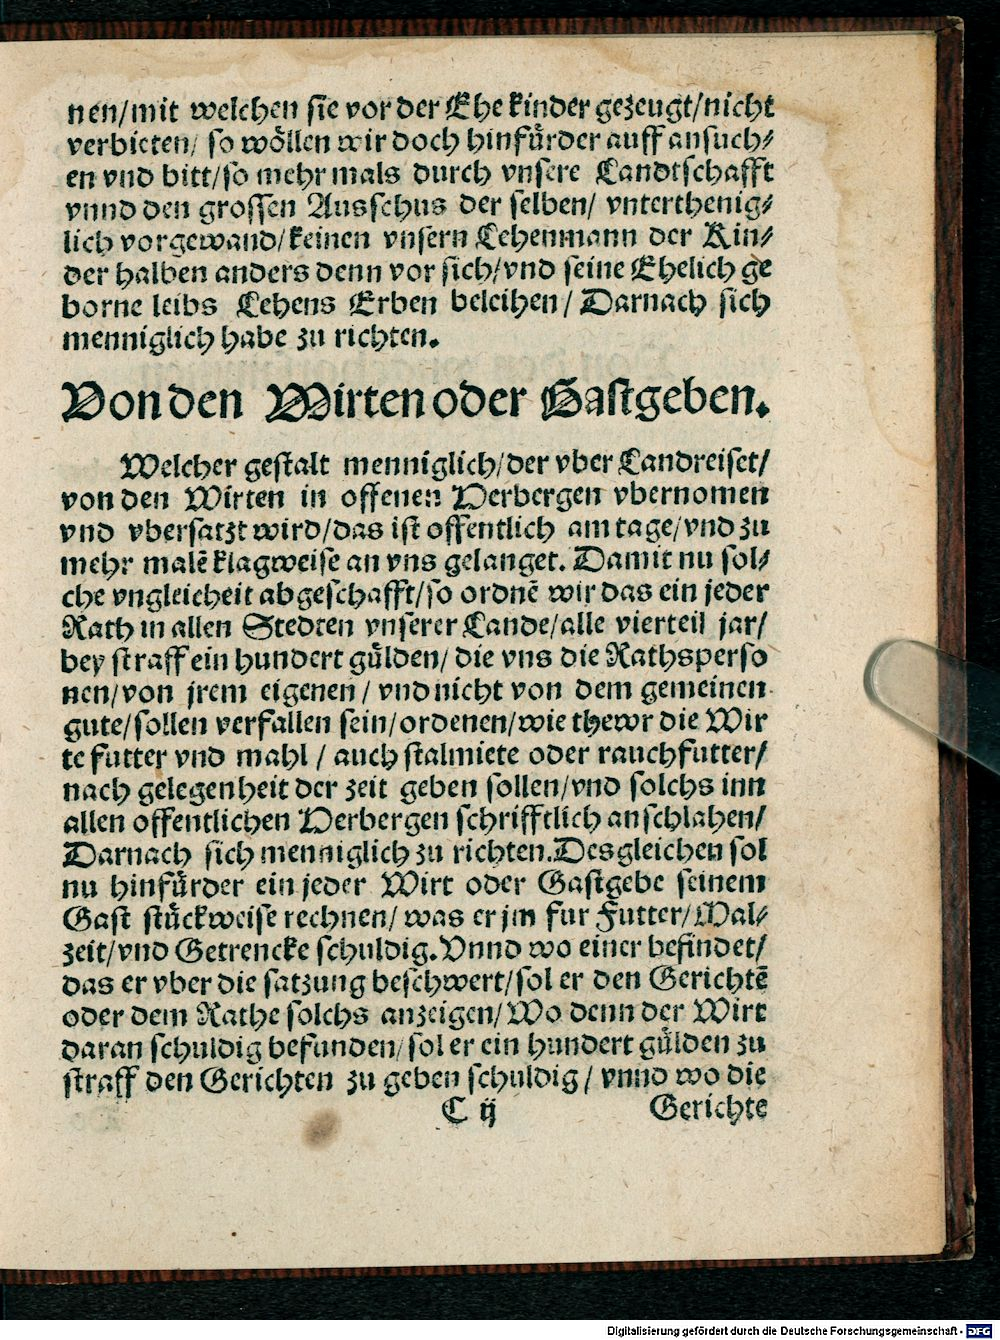 nen/mit welchen sie vor der Ehe kinder gezeugt/nicht
verbieten/ so wöllen wir doch hinfürder auff ansuch⸗
en vnd bitt/so mehr mals durch vnsere Landtschafft
vnnd den grossen Ausschus der selben/ vnterthenig⸗
lich vorgewand/keinen vnsern Lehenmann der Kin⸗
der halben anders denn vor sich/vnd seine Ehelich ge
borne leibs Lehens Erben beleihen/ Darnach sich
menniglich habe zu richten.
Von den Wirten oder Gastgeben.
Welcher gestalt menniglich/der vber Landreiset/
von den Wirten in offenen Herbergen vbernomen
vnd vbersatzt wird/das ist offentlich am tage/vnd zu
mehr malē klagweise an vns gelanget. Damit nu sol⸗
che vngleicheit abgeschafft/so ordnē wir das ein jeder
Rath in allen Stedten vnserer Lande/alle vierteil jar/
bey straff ein hundert gülden/ die vns die Rathsperso
nen/von jrem eigenen/ vnd nicht von dem gemeinen
gute/sollen verfallen sein/ordenen/wie thewr die Wir
te futter vnd mahl / auch stalmiete oder rauchfutter/
nach gelegenheit der zeit geben sollen/vnd solchs inn
allen offentlichen Herbergen schrifftlich anschlahen/
Darnach sich menniglich zu richten.Desgleichen sol
nu hinfürder ein jeder Wirt oder Gastgebe seinem
Gast stückweise rechnen/ was er jm fur Futter/Mal⸗
zeit/vnd Getrencke schuldig.Vnnd wo einer befindet/
das er vber die satzung beschwert/sol er den Gerichtē
oder dem Rathe solchs anzeigen/Wo denn der Wirt
daran schuldig befunden/sol er ein hundert gülden zu
straff den Gerichten zu geben schuldig/ vnnd wo die
C ij Gerichte
Digitalisierung gefördert durch die Deutsche Forschungsgemeinschaft - DFG